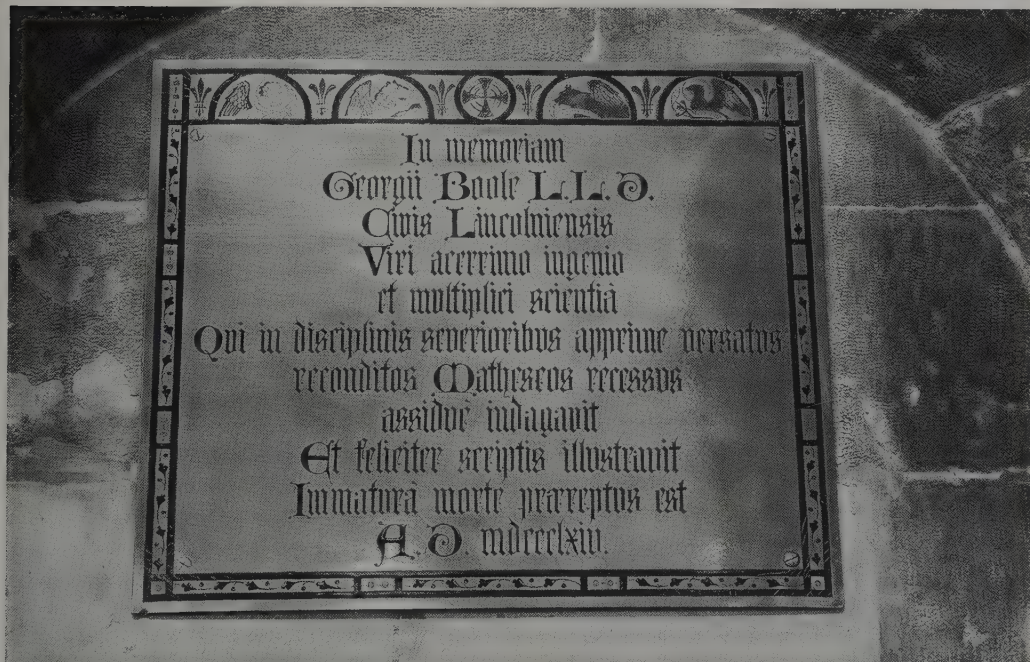 In memoriam
Georgii Boole L.L.D.
Civis Lincolniensis
Viri acerrimo ingenio
et multiplici scientiâ
Qui in disciplinis severioribus apprime versatus
reconditos Matheseos recessus
assidue indagavit
Et feliciter scriptis illustravit
Immaturâ morte præreptus est
A.D. mdccclxiv.